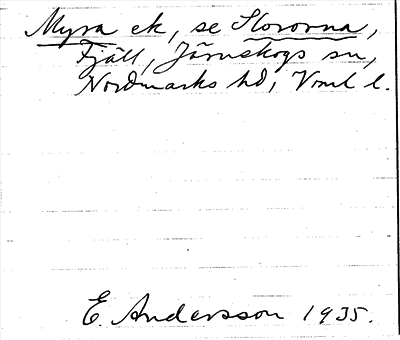 Myra ek, se Stororna,
Fjäll, Järnskogs sn,
Nordmarks hd, Vrml l.
E. Andersson 1935.